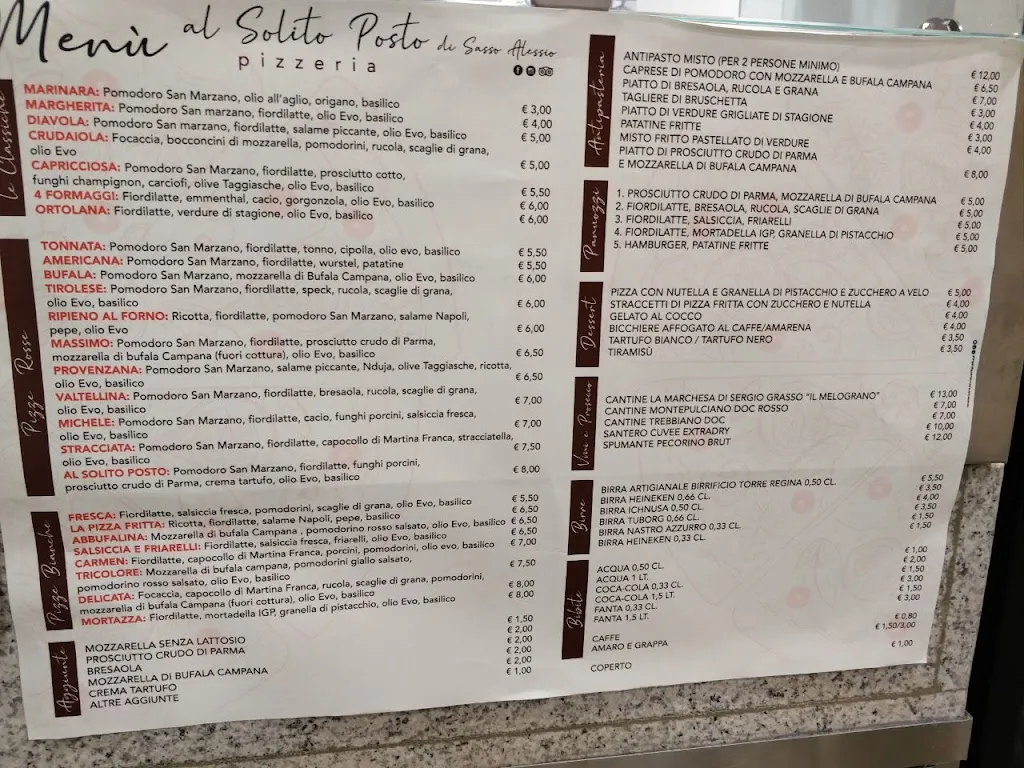 Menù al Solito Posto di Sasso Alessio
pizzeria
le Classiche
MARINARA: Pomodoro San Marzano, olio all'aglio, origano, basilico
€ 3,00
MARGHERITA: Pomodoro San marzano, fiordilatte, olio Evo, basilico
€ 4,00
DIAVOLA: Pomodoro San marzano, fiordilatte, salame piccante, olio Evo, basilico
€ 5,00
CRUDAIOLA: Focaccia, bocconcini di mozzarella, pomodorini, rucola, scaglie di grana,
olio Evo
€ 5,00
CAPRICCIOSA: Pomodoro San Marzano, fiordilatte, prosciutto cotto,
funghi champignon, carciofi, olive Taggiasche, olio Evo, basilico
€ 5,50
4 FORMAGGI: Fiordilatte, emmenthal, cacio, gorgonzola, olio Evo, basilico
€ 6,00
ORTOLANA: Fiordilatte, verdure di stagione, olio Evo, basilico
€ 6,00
Pizze Rosse
TONNATA: Pomodoro San Marzano, fiordilatte, tonno, cipolla, olio evo, basilico
€ 5,50
AMERICANA: Pomodoro San Marzano, fiordilatte, wurstel, patatine
€ 5,50
BUFALA: Pomodoro San Marzano, mozzarella di Bufala Campana, olio Evo, basilico
€ 6,00
TIROLESE: Pomodoro San Marzano, fiordilatte, speck, rucola, scaglie di grana,
olio Evo, basilico
€ 6,00
RIPIENO AL FORNO: Ricotta, fiordilatte, pomodoro San Marzano, salame Napoli,
pepe, olio Evo
€ 6,00
MASSIMO: Pomodoro San Marzano, fiordilatte, prosciutto crudo di Parma,
mozzarella di bufala Campana (fuori cottura), olio Evo, basilico
€ 6,50
PROVENZANA: Pomodoro San Marzano, salame piccante, Nduja, olive Taggiasche, ricotta,
olio Evo, basilico
€ 6,50
VALTELLINA: Pomodoro San Marzano, fiordilatte, bresaola, rucola, scaglie di grana,
olio Evo, basilico
€ 7,00
MICHELE: Pomodoro San Marzano, fiordilatte, cacio, funghi porcini, salsiccia fresca,
olio Evo, basilico
€ 7,00
STRACCIATA: Pomodoro San Marzano, fiordilatte, capocollo di Martina Franca, stracciatella,
olio Evo, basilico
€ 7,50
AL SOLITO POSTO: Pomodoro San Marzano, fiordilatte, funghi porcini,
prosciutto crudo di Parma, crema tartufo, olio Evo, basilico
€ 8,00
Pizze Bianche
FRESCA: Fiordilatte, salsiccia fresca, pomodorini, scaglie di grana, olio Evo, basilico
€ 5,50
LA PIZZA FRITTA: Ricotta, fiordilatte, salame Napoli, pepe, basilico
€ 6,50
ABBUFALINA: Mozzarella di bufala Campana , pomodorino rosso salsato, olio Evo, basilico
€ 6,50
SALSICCIA E FRIARELLI: Fiordilatte, salsiccia fresca, friarelli, olio Evo, basilico
€ 6,50
CARMEN: Fiordilatte, capocollo di Martina Franca, porcini, pomodorini, olio evo, basilico
€ 7,00
TRICOLORE: Mozzarella di bufala campana, pomodorini giallo salsato,
pomodorino rosso salsato, olio Evo, basilico
€ 7,50
DELICATA: Focaccia, capocollo di Martina Franca, rucola, scaglie di grana, pomodorini,
mozzarella di bufala Campana (fuori cottura), olio Evo, basilico
€ 8,00
MORTAZZA: Fiordilatte, mortadella IGP, granella di pistacchio, olio Evo, basilico
€ 8,00
Aggiunte
MOZZARELLA SENZA LATTOSIO
€ 1,50
PROSCIUTTO CRUDO DI PARMA
€ 2,00
BRESAOLA
€ 2,00
MOZZARELLA DI BUFALA CAMPANA
€ 2,00
CREMA TARTUFO
€ 2,00
ALTRE AGGIUNTE
€ 1,00
Antipasteria
ANTIPASTO MISTO (PER 2 PERSONE MINIMO)
€ 12,00
CAPRESE DI POMODORO CON MOZZARELLA E BUFALA CAMPANA
€ 6,50
PIATTO DI BRESAOLA, RUCOLA E GRANA
€ 7,00
TAGLIERE DI BRUSCHETTA
€ 3,00
PIATTO DI VERDURE GRIGLIATE DI STAGIONE
€ 4,00
PATATINE FRITTE
€ 3,00
MISTO FRITTO PASTELLATO DI VERDURE
€ 4,00
PIATTO DI PROSCIUTTO CRUDO DI PARMA
E MOZZARELLA DI BUFALA CAMPANA
€ 8,00
Panuozzi
1. PROSCIUTTO CRUDO DI PARMA, MOZZARELLA DI BUFALA CAMPANA
€ 5,00
2. FIORDILATTE, BRESAOLA, RUCOLA, SCAGLIE DI GRANA
€ 5,00
3. FIORDILATTE, SALSICCIA, FRIARELLI
€ 5,00
4. FIORDILATTE, MORTADELLA IGP, GRANELLA DI PISTACCHIO
€ 5,00
5. HAMBURGER, PATATINE FRITTE
€ 5,00
Dessert
PIZZA CON NUTELLA E GRANELLA DI PISTACCHIO E ZUCCHERO A VELO
€ 5,00
STRACCETTI DI PIZZA FRITTA CON ZUCCHERO E NUTELLA
€ 4,00
GELATO AL COCCO
€ 4,00
BICCHIERE AFFOGATO AL CAFFE/AMARENA
€ 4,00
TARTUFO BIANCO / TARTUFO NERO
€ 3,50
TIRAMISÙ
€ 3,50
Vini e Prosecco
CANTINE LA MARCHESA DI SERGIO GRASSO "IL MELOGRANO"
€ 13,00
CANTINE MONTEPULCIANO DOC ROSSO
€ 7,00
CANTINE TREBBIANO DOC
€ 7,00
SANTERO CUVEE EXTRADRY
€ 10,00
SPUMANTE PECORINO BRUT
€ 12,00
Birre
BIRRA ARTIGIANALE BIRRIFICIO TORRE REGINA 0,50 CL.
€ 5,50
BIRRA HEINEKEN 0,66 CL.
€ 3,50
BIRRA ICHNUSA 0,50 CL.
€ 4,00
BIRRA TUBORG 0,66 CL.
€ 3,50
BIRRA NASTRO AZZURRO 0,33 CL.
€ 1,50
BIRRA HEINEKEN 0,33 CL.
€ 1,50
Bibite
ACQUA 0,50 CL.
€ 1,00
ACQUA 1 LT.
€ 2,00
COCA-COLA 0,33 CL.
€ 1,50
COCA-COLA 1,5 LT.
€ 3,00
FANTA 0,33 CL.
€ 1,50
FANTA 1,5 LT.
€ 3,00
CAFFE
€ 0,80
AMARO E GRAPPA
€ 1,50/3,00
COPERTO
€ 1,00